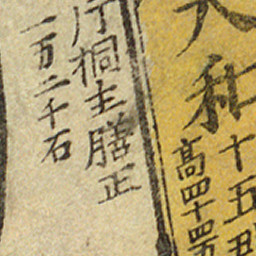 大和
十五郡
高四十四万
片桐主膳正
一万二千石